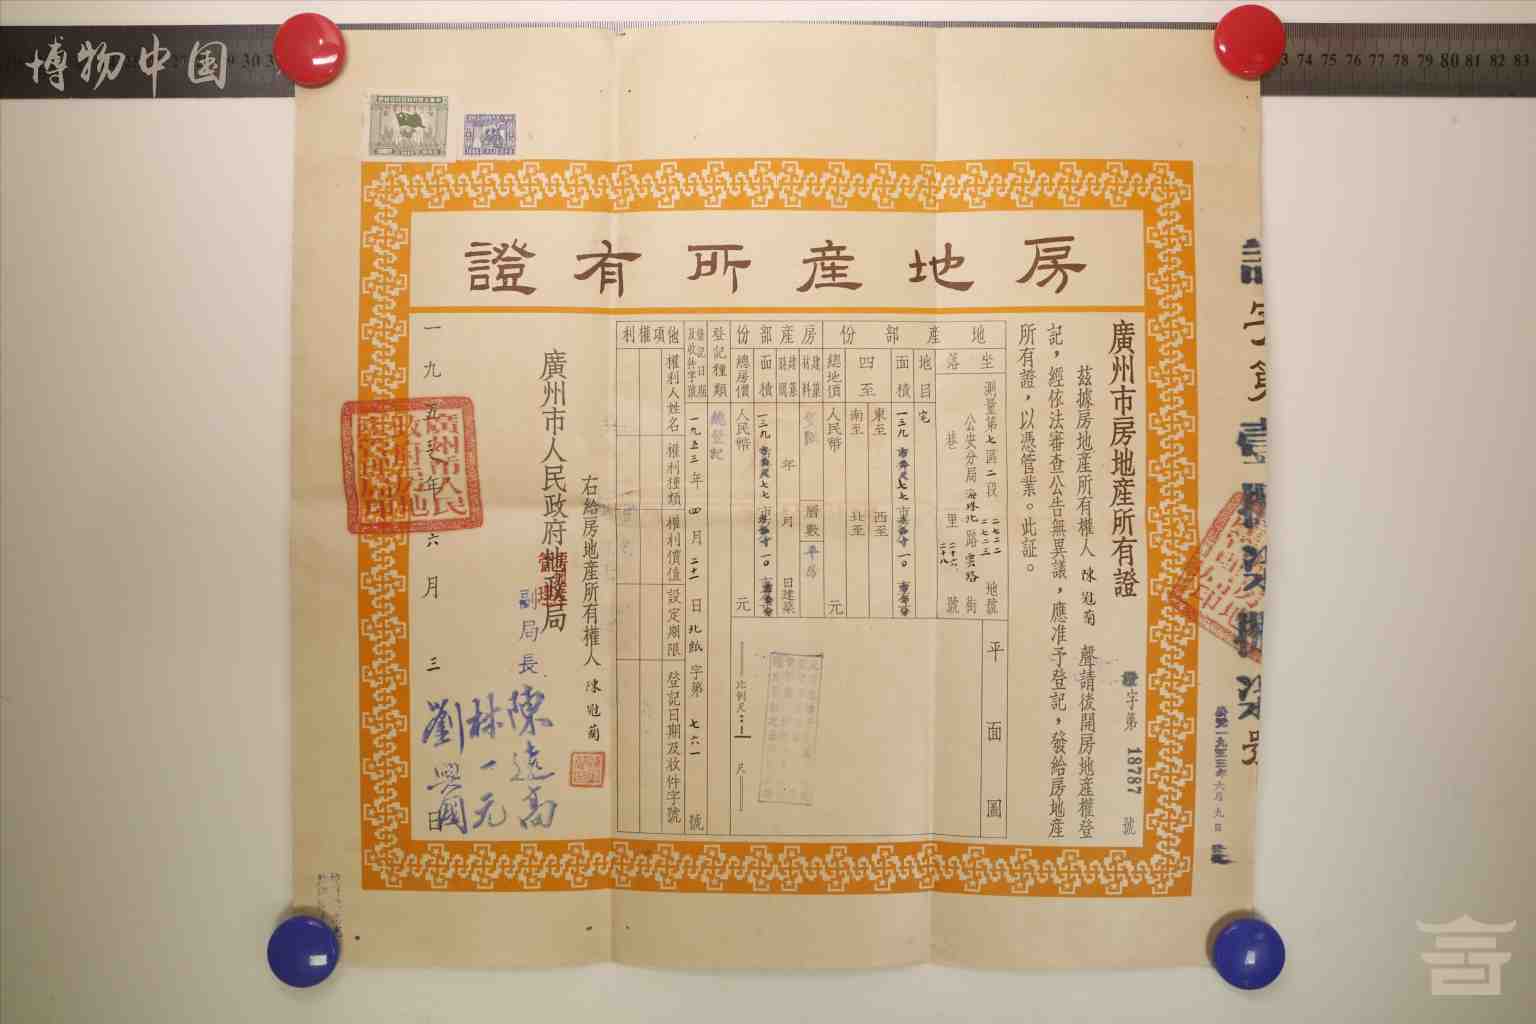 博物中国
30
73 74 75 76 77 78 79 80 81 82 83
房地產所有證
廣州市房地產所有證
字第18787號
茲據房地產所有權人陳冠蘭聲請後開房地產權登
記，經依法審查公告無異議，應准予登記，發給房地產
所有證，以憑管業。此証。
地產部份
坐落
測量第七區二段二七二二 二七二三地號
公安分局海珠北路雲路街
巷里二十六、二十八號
地目
宅
面積
一三九
七七
一〇
四至
東至
西至
南至
北至
總地價
人民幣
元
房產部份
建築材料
層數
平房
年月日建築
面積
一三九
七七
一〇
總房價
人民幣
元
平面圖
比例尺
尺
登記種類
總登記
登記日期及收件字號
一九五三年四月二十一日北紙字第七六一號
他項權利
權利人姓名
權利種類
權利價值
設定期限
登記日期及收件字號
右給房地產所有權人陳冠蘭
廣州市人民政府地政局
副局長
陳遠高
林一元
劉興國
一九五三年六月三日
一九五三年六月九日